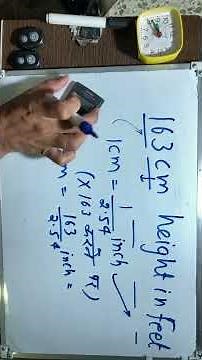 163 cm height in feet
1cm = 1/2.54 inch
(×163 करने पर)
m = 163/2.54 inch =